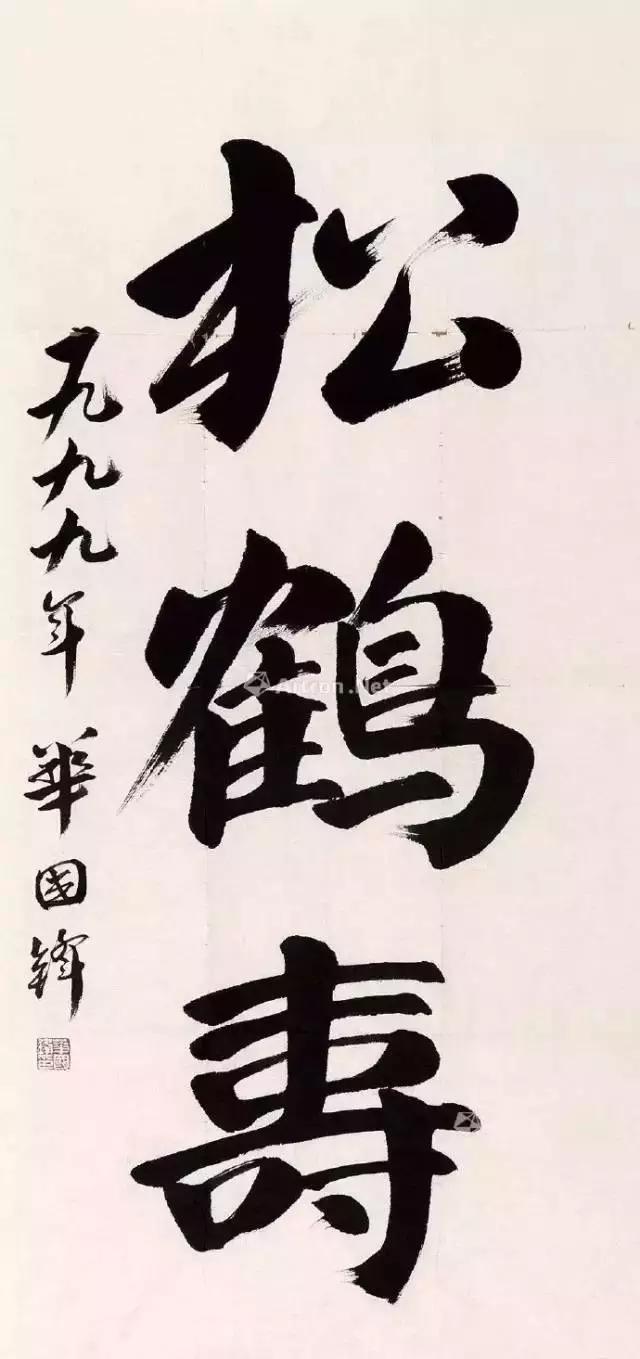 松鶴壽
一九九九年 華國鋒
Artron.Net